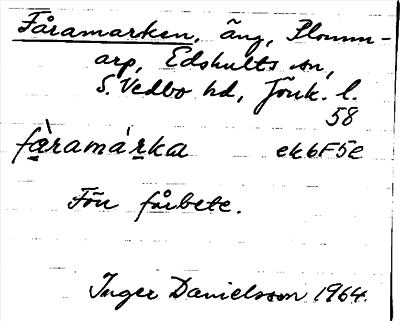 Fåramarken, äng, Plomm-
arp, Edshults sn,
S. Vedbo hd, Jönk. l.
58
fǣramárka ek6F5e
Fön fårbete.
Inger Danielsson 1964.